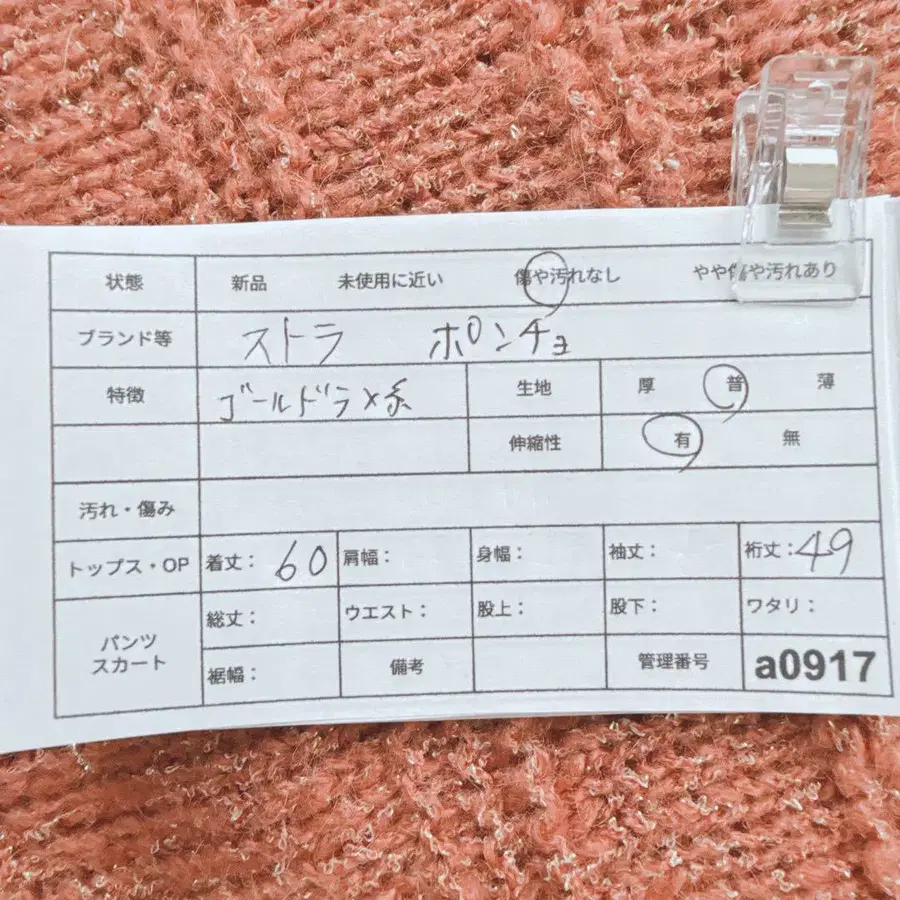 状態 新品 未使用に近い 傷や汚れなし やや傷や汚れあり
ブランド等 ストラ ポンチョ
特徴 ゴールドラメ糸 生地 厚 普 薄
伸縮性 有 無
汚れ・傷み
トップス・OP 着丈: 60 肩幅: 身幅: 袖丈: 裄丈: 49
パンツ スカート 総丈: ウエスト: 股上: 股下: ワタリ:
裾幅: 備考 管理番号 a0917